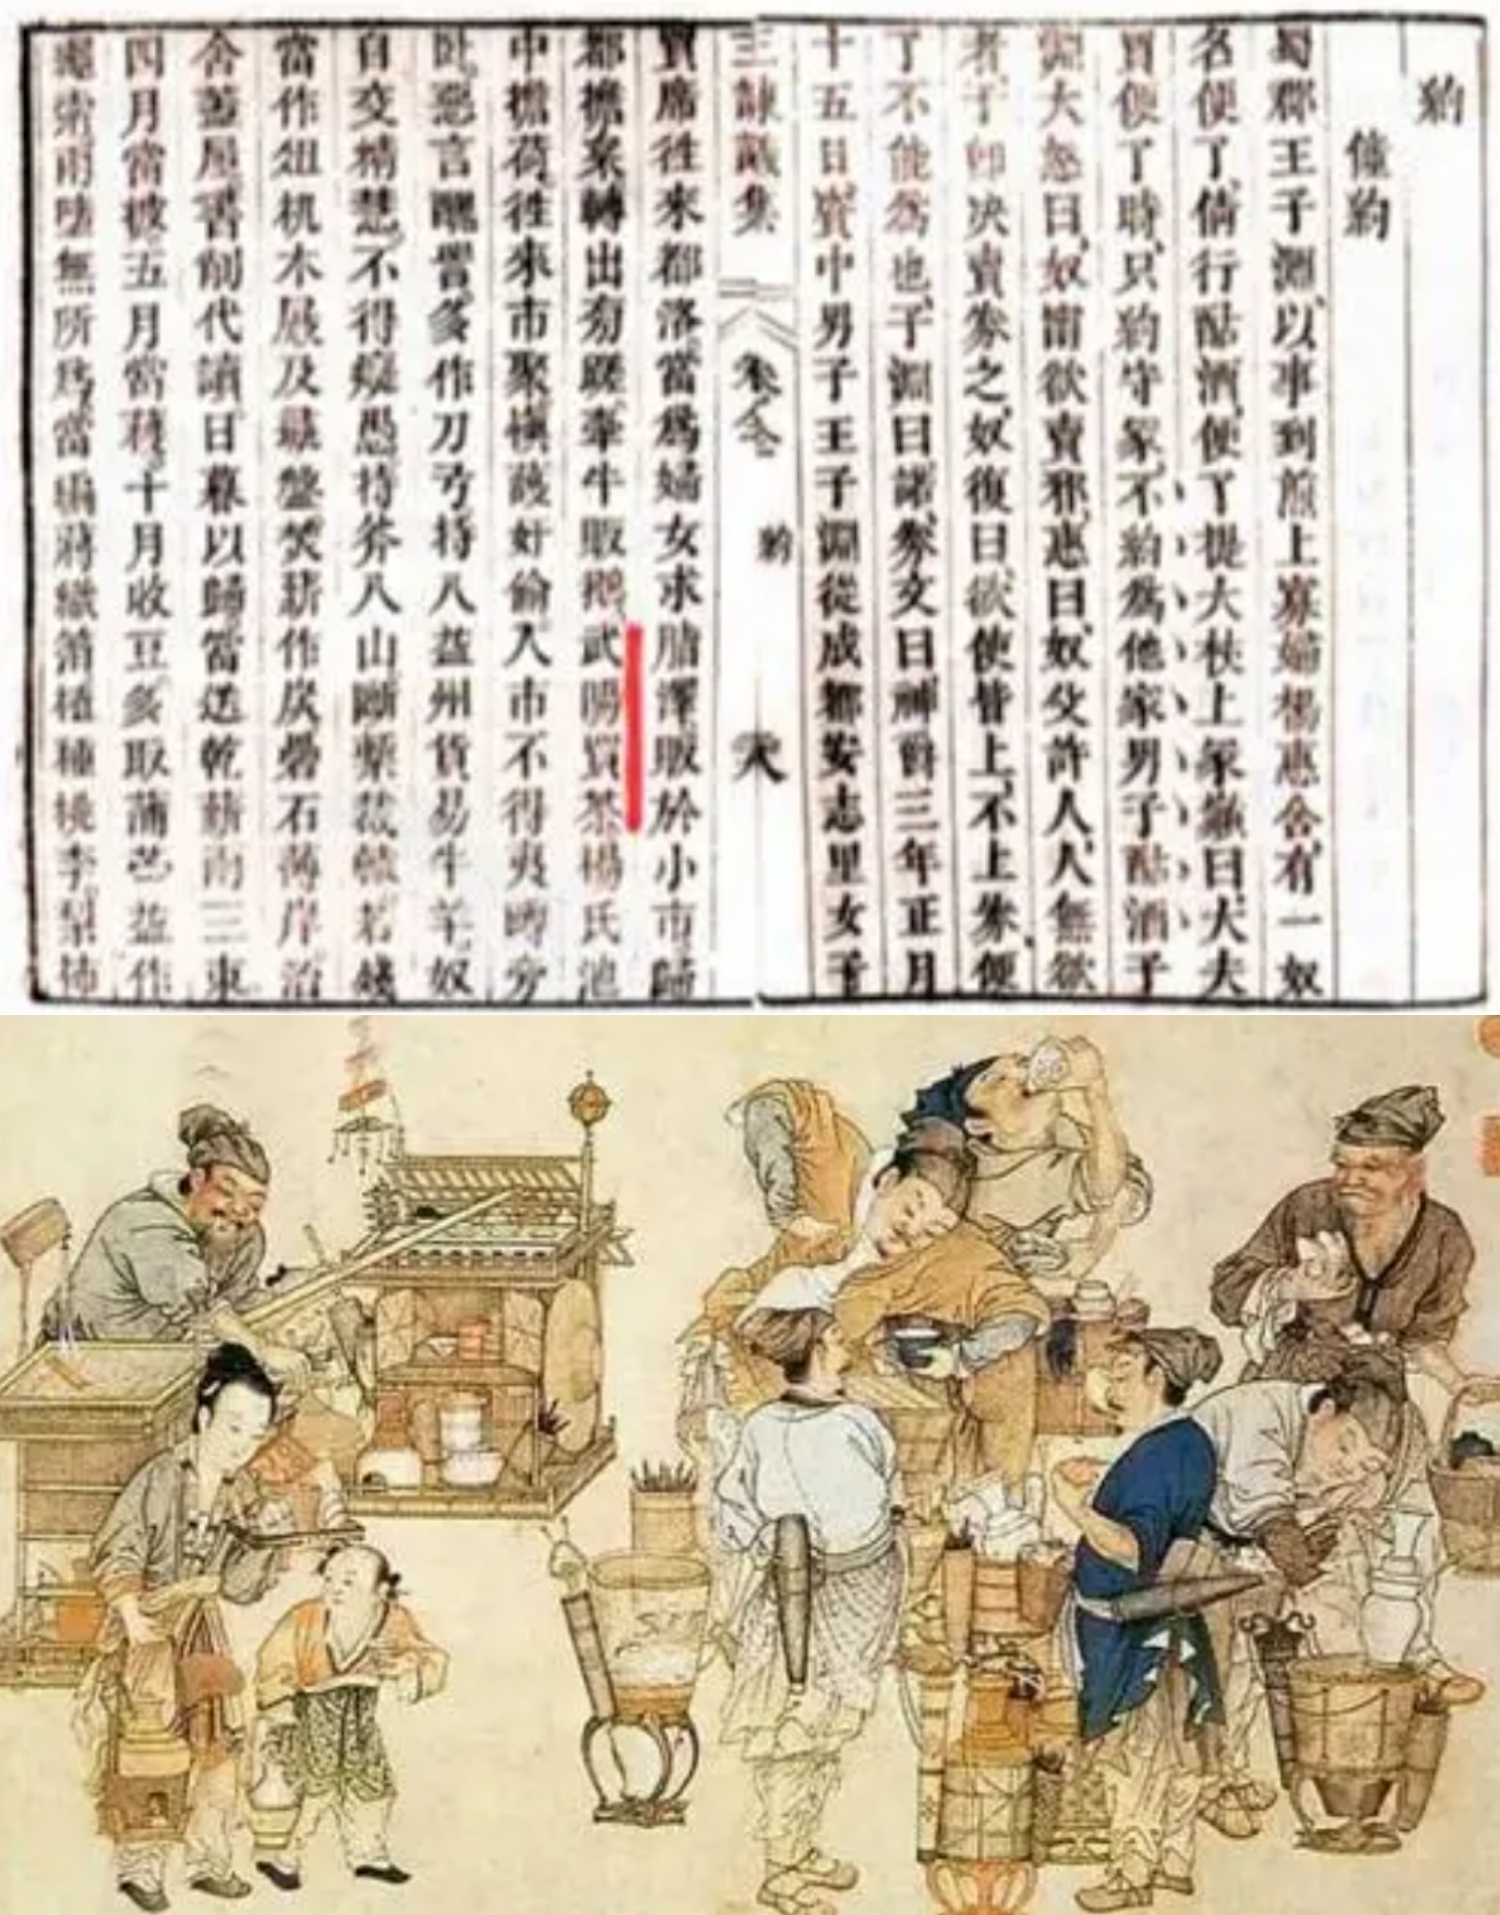 約
僮約
蜀郡王子淵以事到煎上寡婦楊惠舍有一奴
名便了倩行酤酒便了提大杖上冢巔曰大夫
買便了時只約守冢不約為他家男子酤酒子
淵大怒曰奴甯欲賣邪惠曰奴父許人人無欲
者子即决賣券之奴復曰欲使皆上不上券便
了不能為也子淵曰諾券文曰神爵三年正月
十五日資中男子王子淵從成都安志里女子
卷全 約 六
買席往來都洛當為婦女求脂澤販於小市歸
都擔枲轉出旁蹉牽牛販鵝武陽買茶楊氏池
中擔荷往來市聚慎護奸偷入市不得夷蹲旁
臥惡言醜詈多作刀弓持入益州貨易牛羊奴
自交精慧不得癡愚持斧入山斷槧裁轅若殘
當作俎机木屐及彘盤焚薪作炭礜石薄岸治
舍蓋屋書削代牘日暮以歸當送乾薪兩三束
四月當披五月當穫十月收豆多取蒲苧益作
繩索雨墮無所為當編蔣織箔植種桃李梨柿